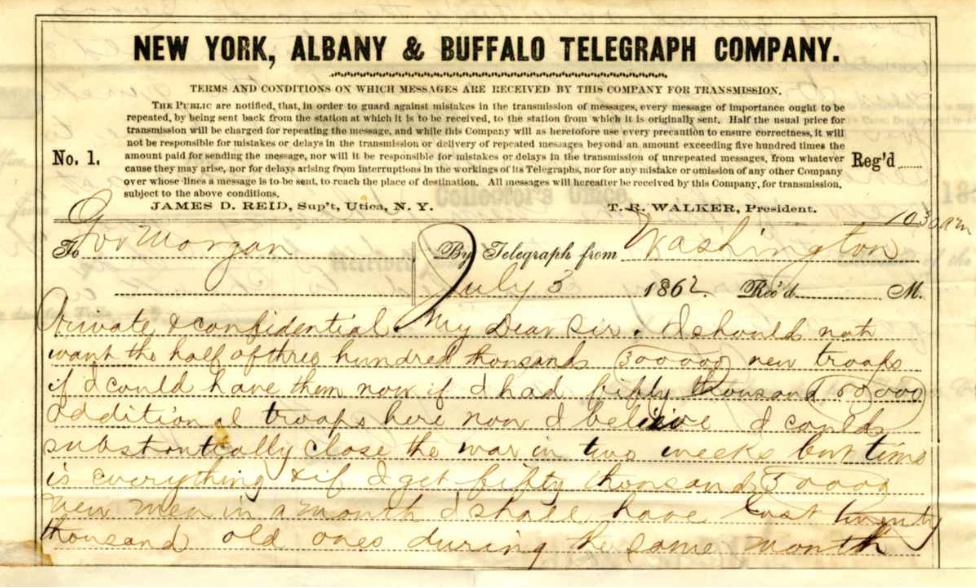 NEW YORK, ALBANY & BUFFALO TELEGRAPH COMPANY.
TERMS AND CONDITIONS ON WHICH MESSAGES ARE RECEIVED BY THIS COMPANY FOR TRANSMISSION.
THE PUBLIC are notified, that, in order to guard against mistakes in the transmission of messages, every message of importance ought to be
repeated, by being sent back from the station at which it is to be received, to the station from which it is originally sent. Half the usual price for
transmission will be charged for repeating the message, and while this Company will as heretofore use every precaution to ensure correctness, it will
not be responsible for mistakes or delays in the transmission or delivery of repeated messages beyond an amount exceeding five hundred times the
No. 1. amount paid for sending the message, nor will it be responsible for mistakes or delays in the transmission of unrepeated messages, from whatever Reg'd
cause they may arise, nor for delays arising from interruptions in the workings of its Telegraphs, nor for any mistake or omission of any other Company
over whose lines a message is to be sent, to reach the place of destination. All messages will hereafter be received by this Company, for transmission,
subject to the above conditions.
JAMES D. REID, Sup't, Utica, N. Y. T. R. WALKER, President.
10 30 am
To Gov Morgan By Telegraph from Washington
July 3 1862. Rec'd M.
Private & confidential. My Dear Sir. I should not
want the half of three hundred thousands 300000 new troops
if I could have them now if I had fifty thousand 50000
additional troops here now I believe I could
substantially close the war in two weeks but time
is everything & if I get fifty thousand 50000
new men in a month I shall have lost twenty
thousand old ones during the same month